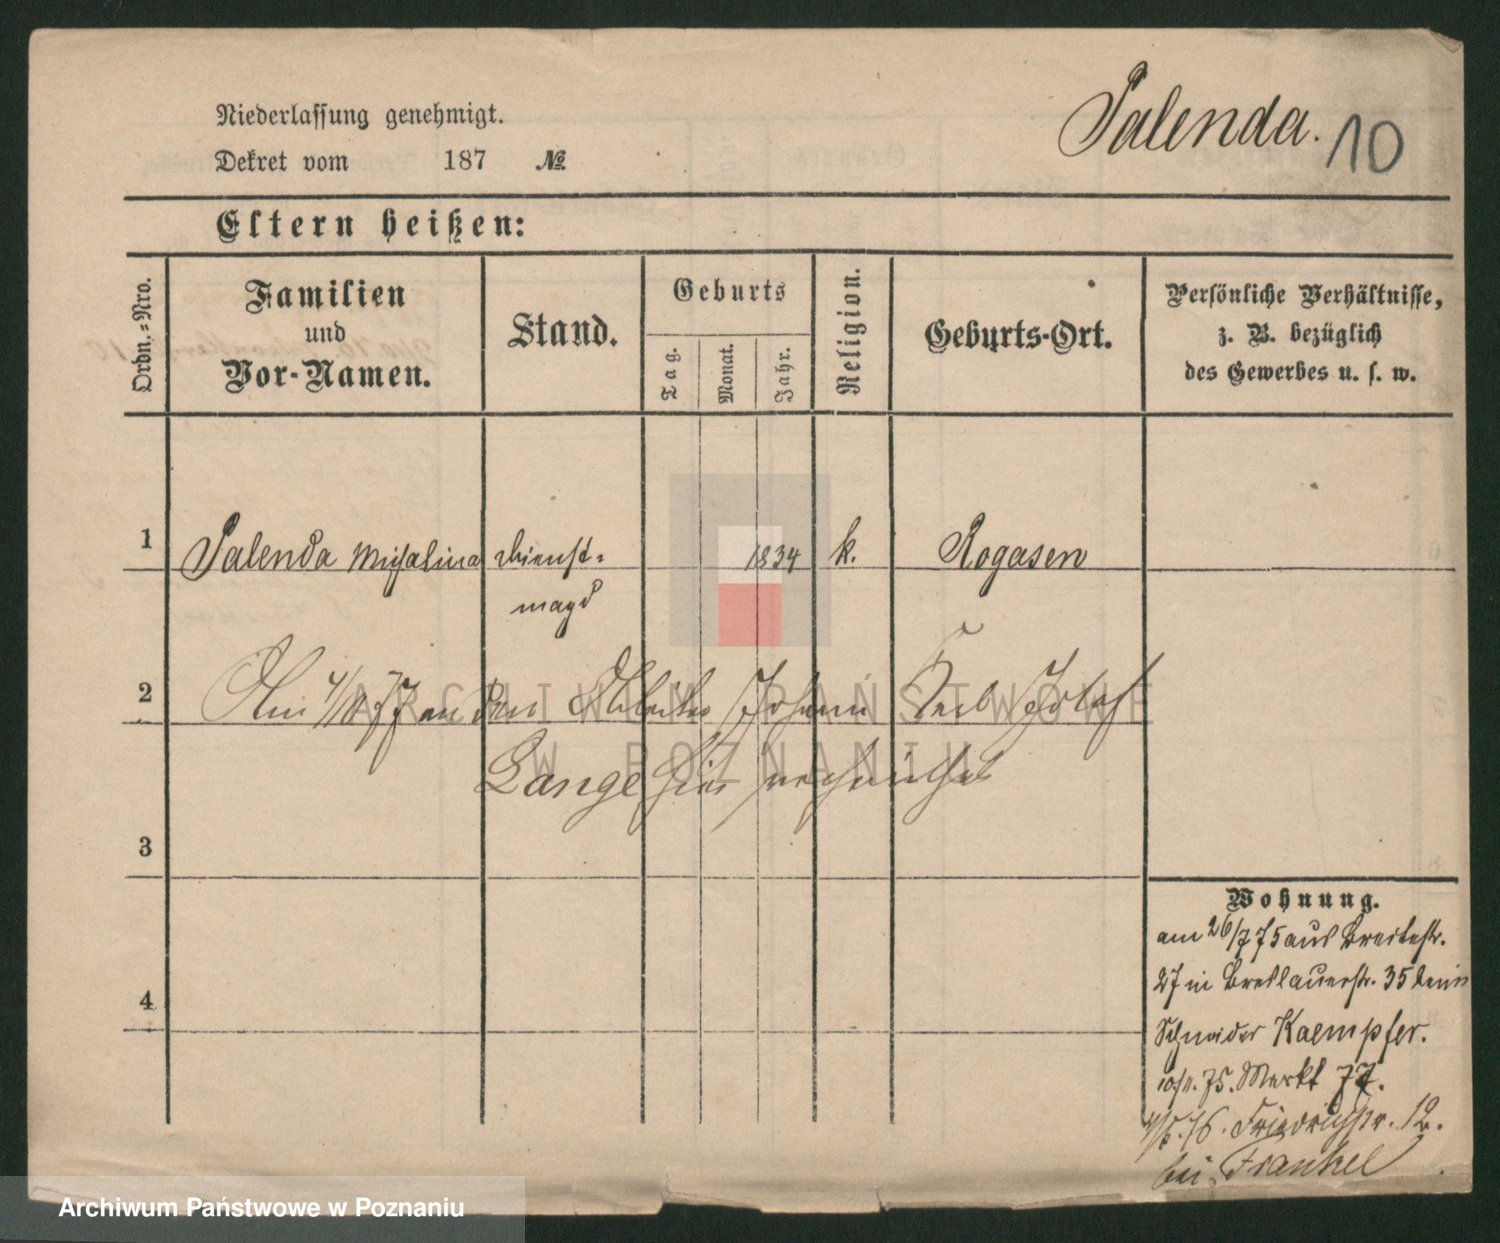 Niederlassung genehmigt.
Palenda. 10
Dekret vom 187 №
Eltern heißen:
Ordn.-Nro.
Familien
und
Vor-Namen.
Stand.
Geburts
Tag.
Monat.
Jahr.
Religion.
Geburts-Ort.
Persönliche Verhältnisse,
z. B. bezüglich
des Gewerbes u. s. w.
1 Palenda Michalina Dienst- 1834 k. Rogasen
magd
2 Am 4/10 77 an den Johann Carl
Lange hier verheirathet
3
4
Wohnung.
am 26/7 75 aus Breitestr.
27 in Breslauerstr. 35 beim
Schneider Kaempfer.
10/11. 75. Markt 77.
Friedrichstr. 12.
bei Frankel
ARCHIWUM PAŃSTWOWE
W POZNANIU
Archiwum Państwowe w Poznaniu